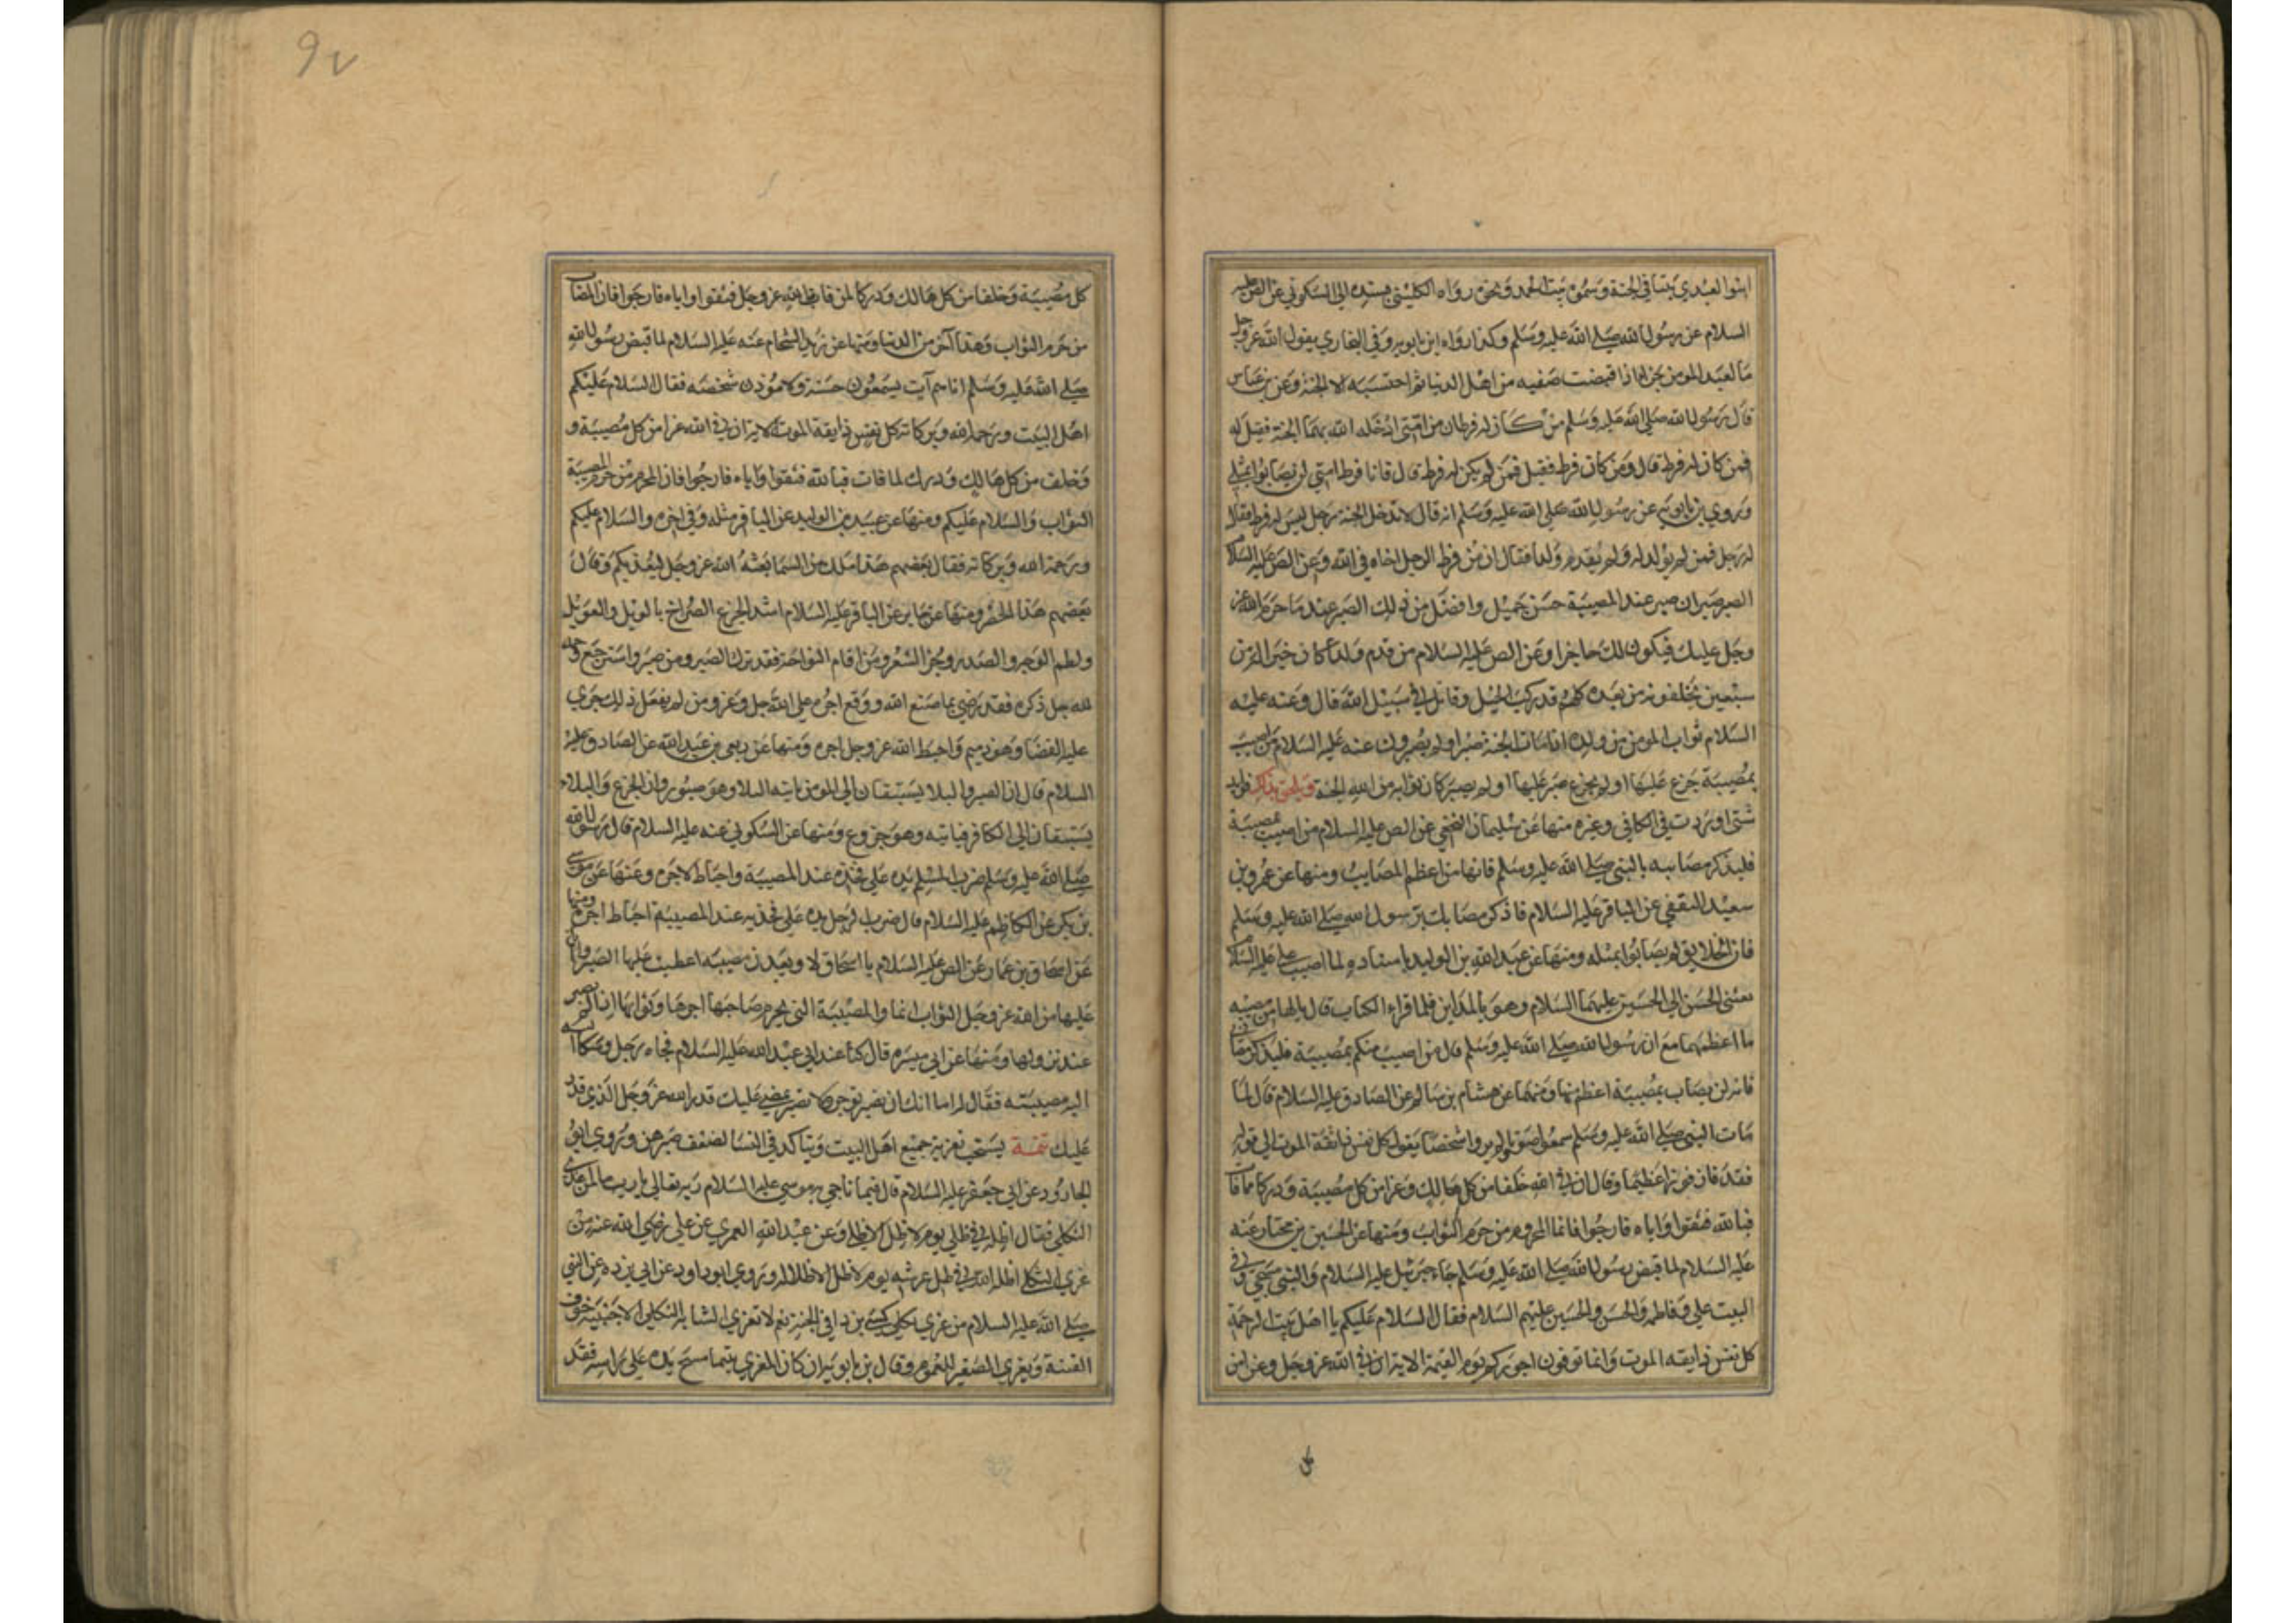 ابنوا لعبدي بيتا في الجنة وسموه بيت الحمد ونحوه رواه الكليني بسنده الى السكوني عن الص عليه
السلام عن رسول الله صلى الله عليه وسلم وكذا رواه ابن بابويه وفي البخاري يقول الله عز وجل
ما لعبد المومن جزا اذا قبضت صفيه من اهل الدنيا ثم احتسبه الا الجنة وعن بن عباس
قال رسول الله صلى الله عليه وسلم من كان له فرطان من امتي ادخله الله بهما الجنة فقيل له
فمن كان له فرط قال ومن كان فرط فقيل فمن لم يكن له فرط قال فانا فرط امتي لن يصابوا بمثلي
وروي بن بابويه عن رسول الله صلى الله عليه وسلم انه قال لا تدخل الجنة رجل ليس له فرط فقال
له رجل فمن لم يولد له ولم يقدم ولدا فقال ان من فرط الرجل اخاه في الله وعن الص عليه السلام
الصبر صبران صبر عند المصيبة حسن جميل وافضل من ذلك الصبر عند ما حرم الله عز
وجل عليك فيكون لك حاجزا وعن الص عليه السلام من قدم ولدا كان خيرا من
سبعين يخلفونه من بعده كلهم قد ركب الخيل وقاتل في سبيل الله قال وعنه عليه
السلام ثواب المومن من ولده اذا مات الجنة صبر او لم يصبر وعنه عليه السلام من اصيب
بمصيبة جزع عليها او لم يجزع صبر عليها او لم يصبر كان ثوابه من الله الجنة
شتى اوردت في الكافي وغيره منها عن سليمان النخعي عن الص عليه السلام من اصيب بمصيبة
فليذكر مصابه بالنبي صلى الله عليه وسلم فانها من اعظم المصايب ومنها عن عمرو بن
سعيد الثقفي عن الباقر عليه السلام فاذكر مصابك برسول الله صلى الله عليه وسلم
فان الخلايق لم يصابوا بمثله ومنها عن عبد الله بن الوليد باسناده لما اصيب علي عليه السلام
نعى الحسن الى الحسين عليهما السلام وهو بالمداين فلما قراء الكتاب قال يا لها من مصيبة
ما اعظمها مع ان رسول الله صلى الله عليه وسلم قال من اصيب منكم بمصيبة فليذكر مصابي
فانه لن يصاب بمصيبة اعظم منها ومنها عن هشام بن سالم عن الصادق عليه السلام قال لما
مات النبي صلى الله عليه وسلم سمعوا صوتا ولم يروا شخصا يقول كل نفس ذائقة الموت الى قوله
فقد فاز فوزا عظيما وقال ان في الله خلفا من كل هالك وعزا من كل مصيبة ودركا مما فات
فبالله فثقوا واياه فارجوا فانما المحروم من حرم الثواب ومنها عن الحسين بن مختار عنه
عليه السلام لما قبض رسول الله صلى الله عليه وسلم جاء جبرئيل عليه السلام والنبي مسجى وفي
البيت علي وفاطمة والحسن والحسين عليهم السلام فقال السلام عليكم يا اهل بيت الرحمة
كل نفس ذايقة الموت وانما توفون اجوركم يوم القيمة الاية ان في الله عز وجل وعزا من
كل مصيبة وخلفا من كل هالك ودركا لمن فات الله عز وجل فثقوا واياه فارجوا فان المصاب
من حرم الثواب وهذا آخر من الدنيا ومنها عن زيد الشحام عنه عليه السلام لما قبض رسول الله
صلى الله عليه وسلم اتاهم آت يسمعون حسه ولا يرون شخصه فقال السلام عليكم
اهل البيت ورحمة الله وبركاته كل نفس ذايقة الموت الاية ان في الله عزا من كل مصيبة و
وخلف من كل هالك ودرك لما فات فبالله فثقوا واياه فارجوا فان المحروم من حرم المصيبة
الثواب والسلام عليكم ومنها عن عبيد بن الوليد عن الباقر مثله وفي اخره والسلام عليكم
ورحمة الله وبركاته فقال بعضهم هذا ملك من السما بعثه الله عز وجل ليعزيكم وقال
بعضهم هذا الخضر ومنها عن جابر عن الباقر عليه السلام اشد الجزع الصراخ بالويل والعويل
ولطم الوجه والصدر وجز الشعر ومن اقام النواحة فقد ترك الصبر ومن صبر واسترجع وحمد
لله جل ذكره فقد رضي بما صنع الله ووقع اجره على الله جل وعز ومن لم يفعل ذلك جرى
عليه القضا وهو ذميم واحبط الله عز وجل اجره ومنها عن ربعي بن عبد الله عن الصادق عليه
السلام قال ان الصبر والبلا يستبقان الى المومن ياتيه البلا وهو صبور وان الجزع والبلاء
يستبقان الى الكافر فياتيه وهو جزوع ومنها عن السكوني عنه عليه السلام قال رسول الله
صلى الله عليه وسلم ضرب المسلم يده على فخذه عند المصيبة واحباط لاجره وعنها عن موسى
بن بكر عن الكاظم عليه السلام قال ضرب الرجل يده على فخذيه عند المصيبة احباط اجره ومنها
عن اسحاق بن عمار عن الص عليه السلام يا اسحاق لا وتعدن مصيبة اعطيت عليها الصبر
عليها من الله عز وجل الثواب انما والمصيبة التي يحرم صاحبها اجرها وثوابها اذا لم يصبر
عند نزولها ومنها عن ابي ميسره قال كنا عند ابي عبد الله عليه السلام فجاه رجل وشكا
اليه مصيبته فقال له اما انك ان تصبر توجر والا تصبر يمضي عليك قدر الله عز وجل الذي قدر
عليك تتمة يستحب تعزية جميع اهل البيت ويتاكد في النسا لضعف صبرهن وروي ابو
الجارود عن ابي جعفر عليه السلام قال فيما ناجى به موسى عليه السلام ربه تعالى يا رب ما لمن عزى
الثكلى فقال اظله في ظلي يوم لا ظل الا ظلي وعن عبد الله العمري عن علي رضي الله عنه من
عزى الثكلى اظله الله في ظل عرشه يوم لا ظل الا ظلاله وروي ابو داود عن ابي بزده عن النبي
صلى الله عليه السلام من عزى ثكلى كسي بردا في الجنة نعم لا تعزي الشابه الثكلى الاجنبية خوف
الفتنة ويعزي الصغير للعموم وقال بن بابويه ان كان المعزى يتيما مسح يده على راسه فقد